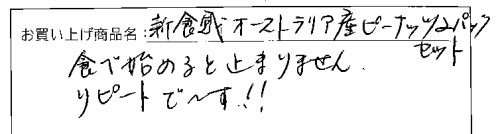 お買い上げ商品名：新食感オーストラリア産ピーナッツ2パック
セット
食べ始めると止まりません.
リピートで〜す!!